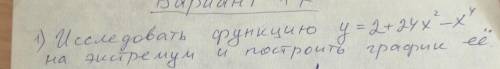 Вариант
1) Исследовать функцию y = 2 + 24x² - x⁴
на экстремум и построить график её